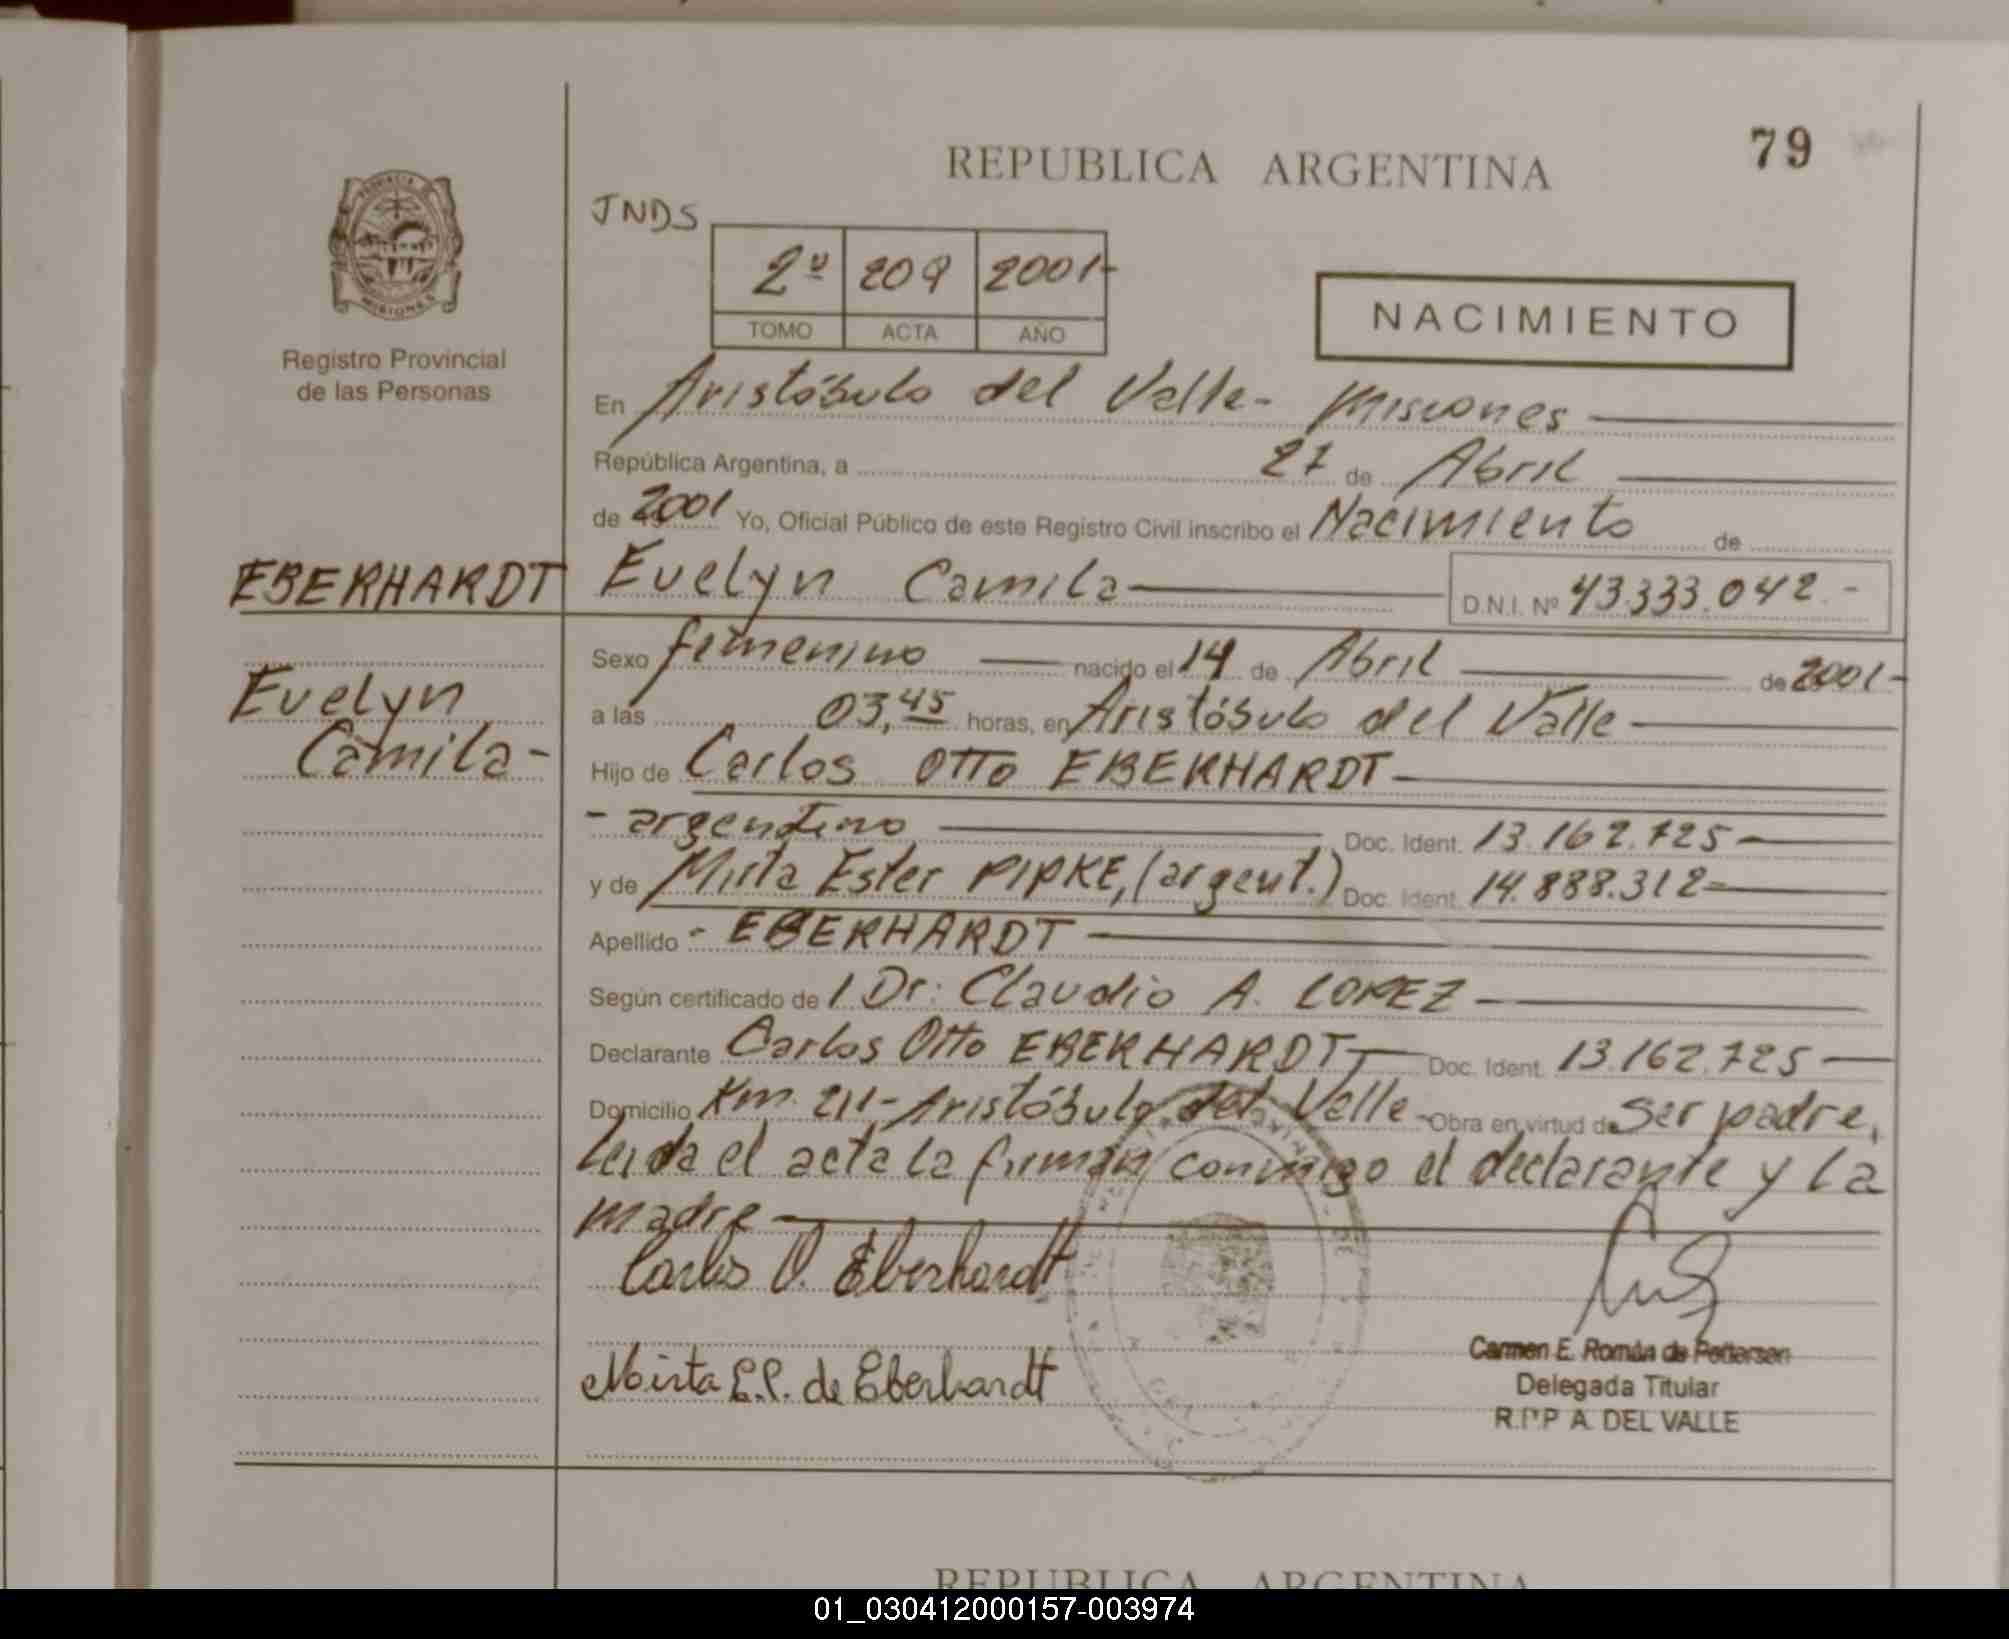 79
REPUBLICA ARGENTINA
JNDS
2º 209 2001-
TOMO ACTA AÑO
NACIMIENTO
PROVINCIA DE
MISIONES
Registro Provincial
de las Personas
En Aristóbulo del Valle- Misiones
República Argentina, a 27 de Abril
de 2001 Yo, Oficial Público de este Registro Civil inscribo el Nacimiento de
EBERHARDT Evelyn Camila D.N.I. Nº 43.333.042.-
Sexo femenino nacido el 14 de Abril de 2001-
Evelyn
Camila-
a las 03,45 horas, en Aristóbulo del Valle
Hijo de Carlos Otto EBERHARDT
- argentino Doc. Ident. 13.162.725
y de Mirta Ester PIPKE, (argent.) Doc. Ident. 14.888.312-
Apellido - EBERHARDT
Según certificado de / Dr: Claudio A. LOPEZ
Declarante Carlos Otto EBERHARDT Doc. Ident. 13.162.725
Domicilio Km. 211- Aristóbulo del Valle- Obra en virtud de Ser padre,
leida el acta la firman conmigo el declarante y la
madre
Carlos O. Eberhardt
Mirta E.P. de Eberhardt
Carmen E. Román de Pettersen
Delegada Titular
R.P.P A. DEL VALLE
REPUBLICA ARGENTINA
01_030412000157-003974